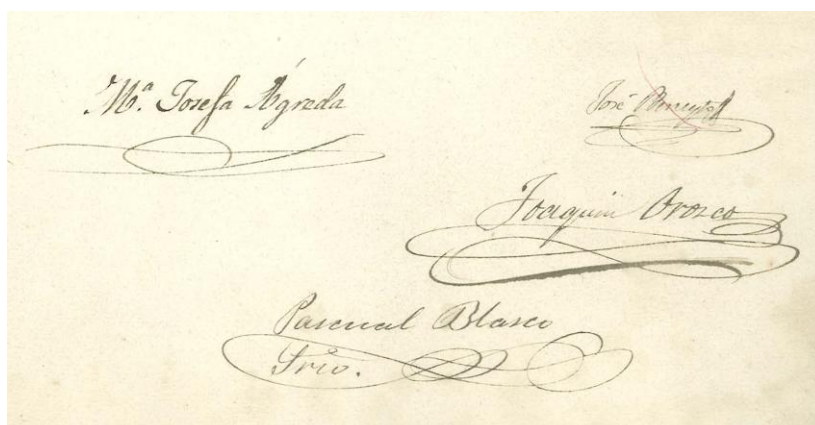 Mª. Josefa Ágreda
José
Joaquin Orozco
Pascual Blasco
Srio.